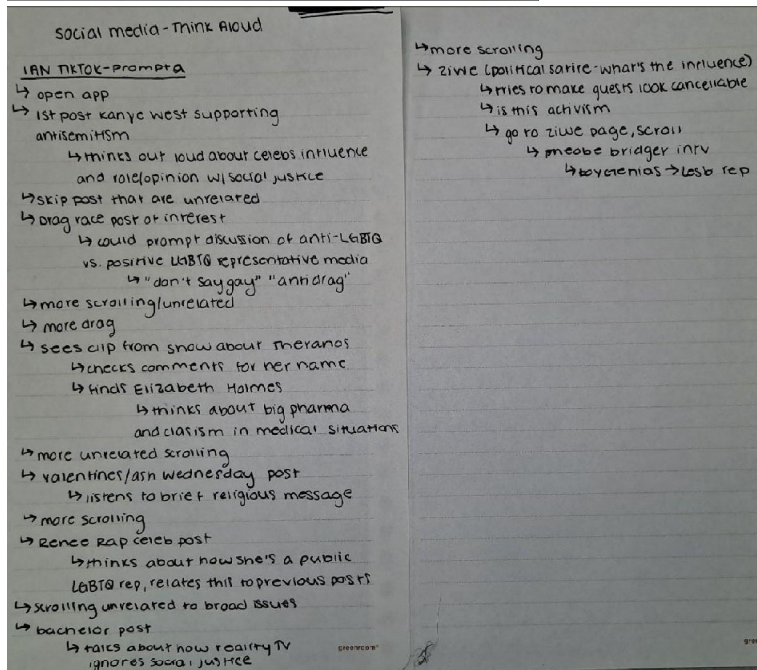 social media - Think Aloud
IAN TIKTOK - prompt a
↳ open app
↳ 1st post Kanye West supporting
antisemitism
↳ thinks out loud about celebs influence
and role/opinion w/ social justice
↳ skip post that are unrelated
↳ Drag race post of interest
↳ could prompt discussion of anti-LGBTQ
vs. positive LGBTQ representative media
↳ "don't say gay" "anti drag"
↳ more scrolling/unrelated
↳ more drag
↳ sees clip from show about Theranos
↳ checks comments for her name
↳ finds Elizabeth Holmes
↳ thinks about big pharma
and clasism in medical situations
↳ more unrelated scrolling
↳ valentines/ash wednesday post
↳ listens to brief religious message
↳ more scrolling
↳ Renee Rap celeb post
↳ thinks about how she's a public
LGBTQ rep, relates this to previous posts
↳ scrolling unrelated to broad issues
↳ bachelor post
↳ talks about how reality TV
ignores social justice
greenroom
↳ more scrolling
↳ ziwe (political satire - what's the influence)
↳ tries to make guests look cancellable
↳ is this activism
↳ go to ziwe page, scroll
↳ pheobe bridger intv
↳ boygenius → lesb rep